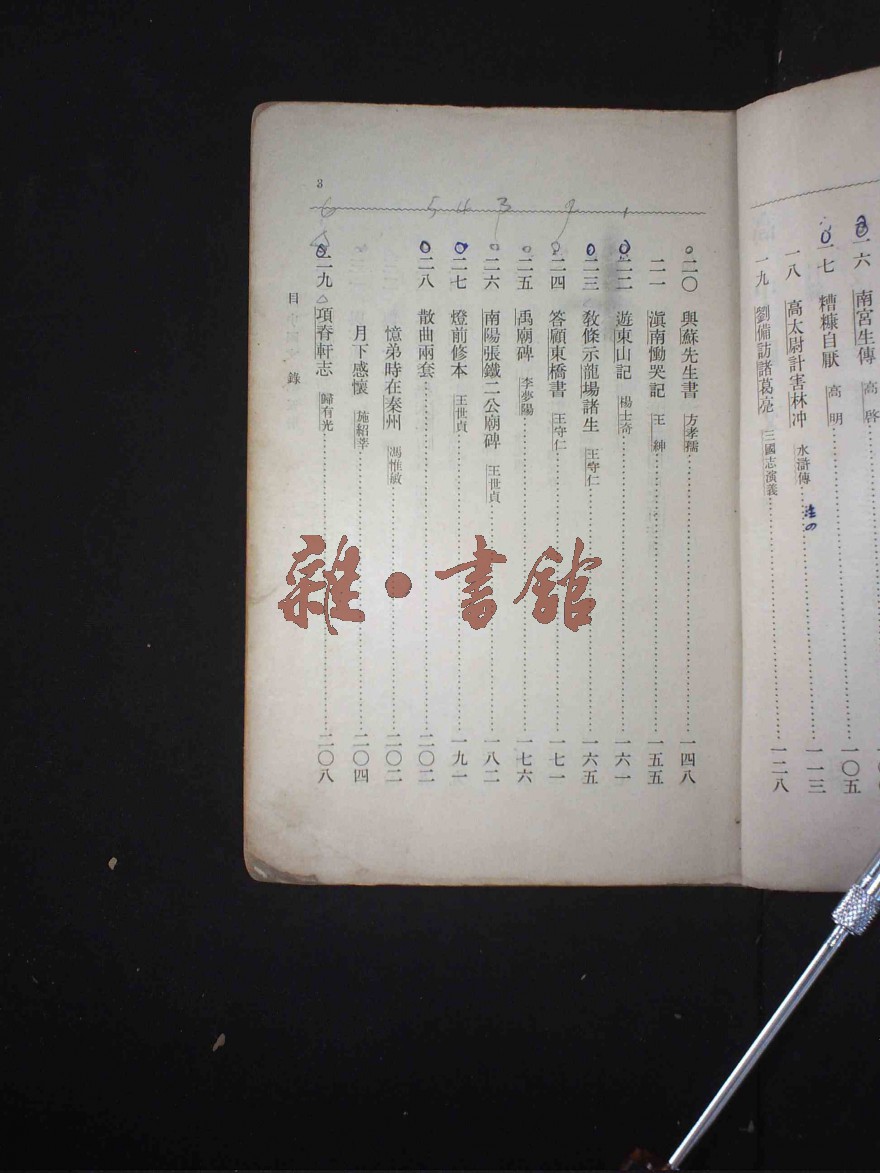 一六 南宮生傳 高啓 一〇五
一七 糟糠自厭 高明 一一三
一八 高太尉計害林冲 水滸傳
一九 劉備訪諸葛亮 三國志演義 一二八
3
二〇 與蘇先生書 方孝孺 一四八
二一 滇南慟哭記 王紳 一五五
二二 遊東山記 楊士奇 一六一
二三 敎條示龍場諸生 王守仁 一六五
二四 答顧東橋書 王守仁 一七一
二五 禹廟碑 李夢陽 一七六
二六 南陽張鐵二公廟碑 王世貞 一八二
二七 燈前修本 王世貞 一九一
二八 散曲兩套 二〇二
憶弟時在秦州 馮惟敏 二〇二
月下感懷 施紹莘 二〇四
二九 項脊軒志 歸有光 二〇八
目錄
6 5 4 3 2 1
雜·書館